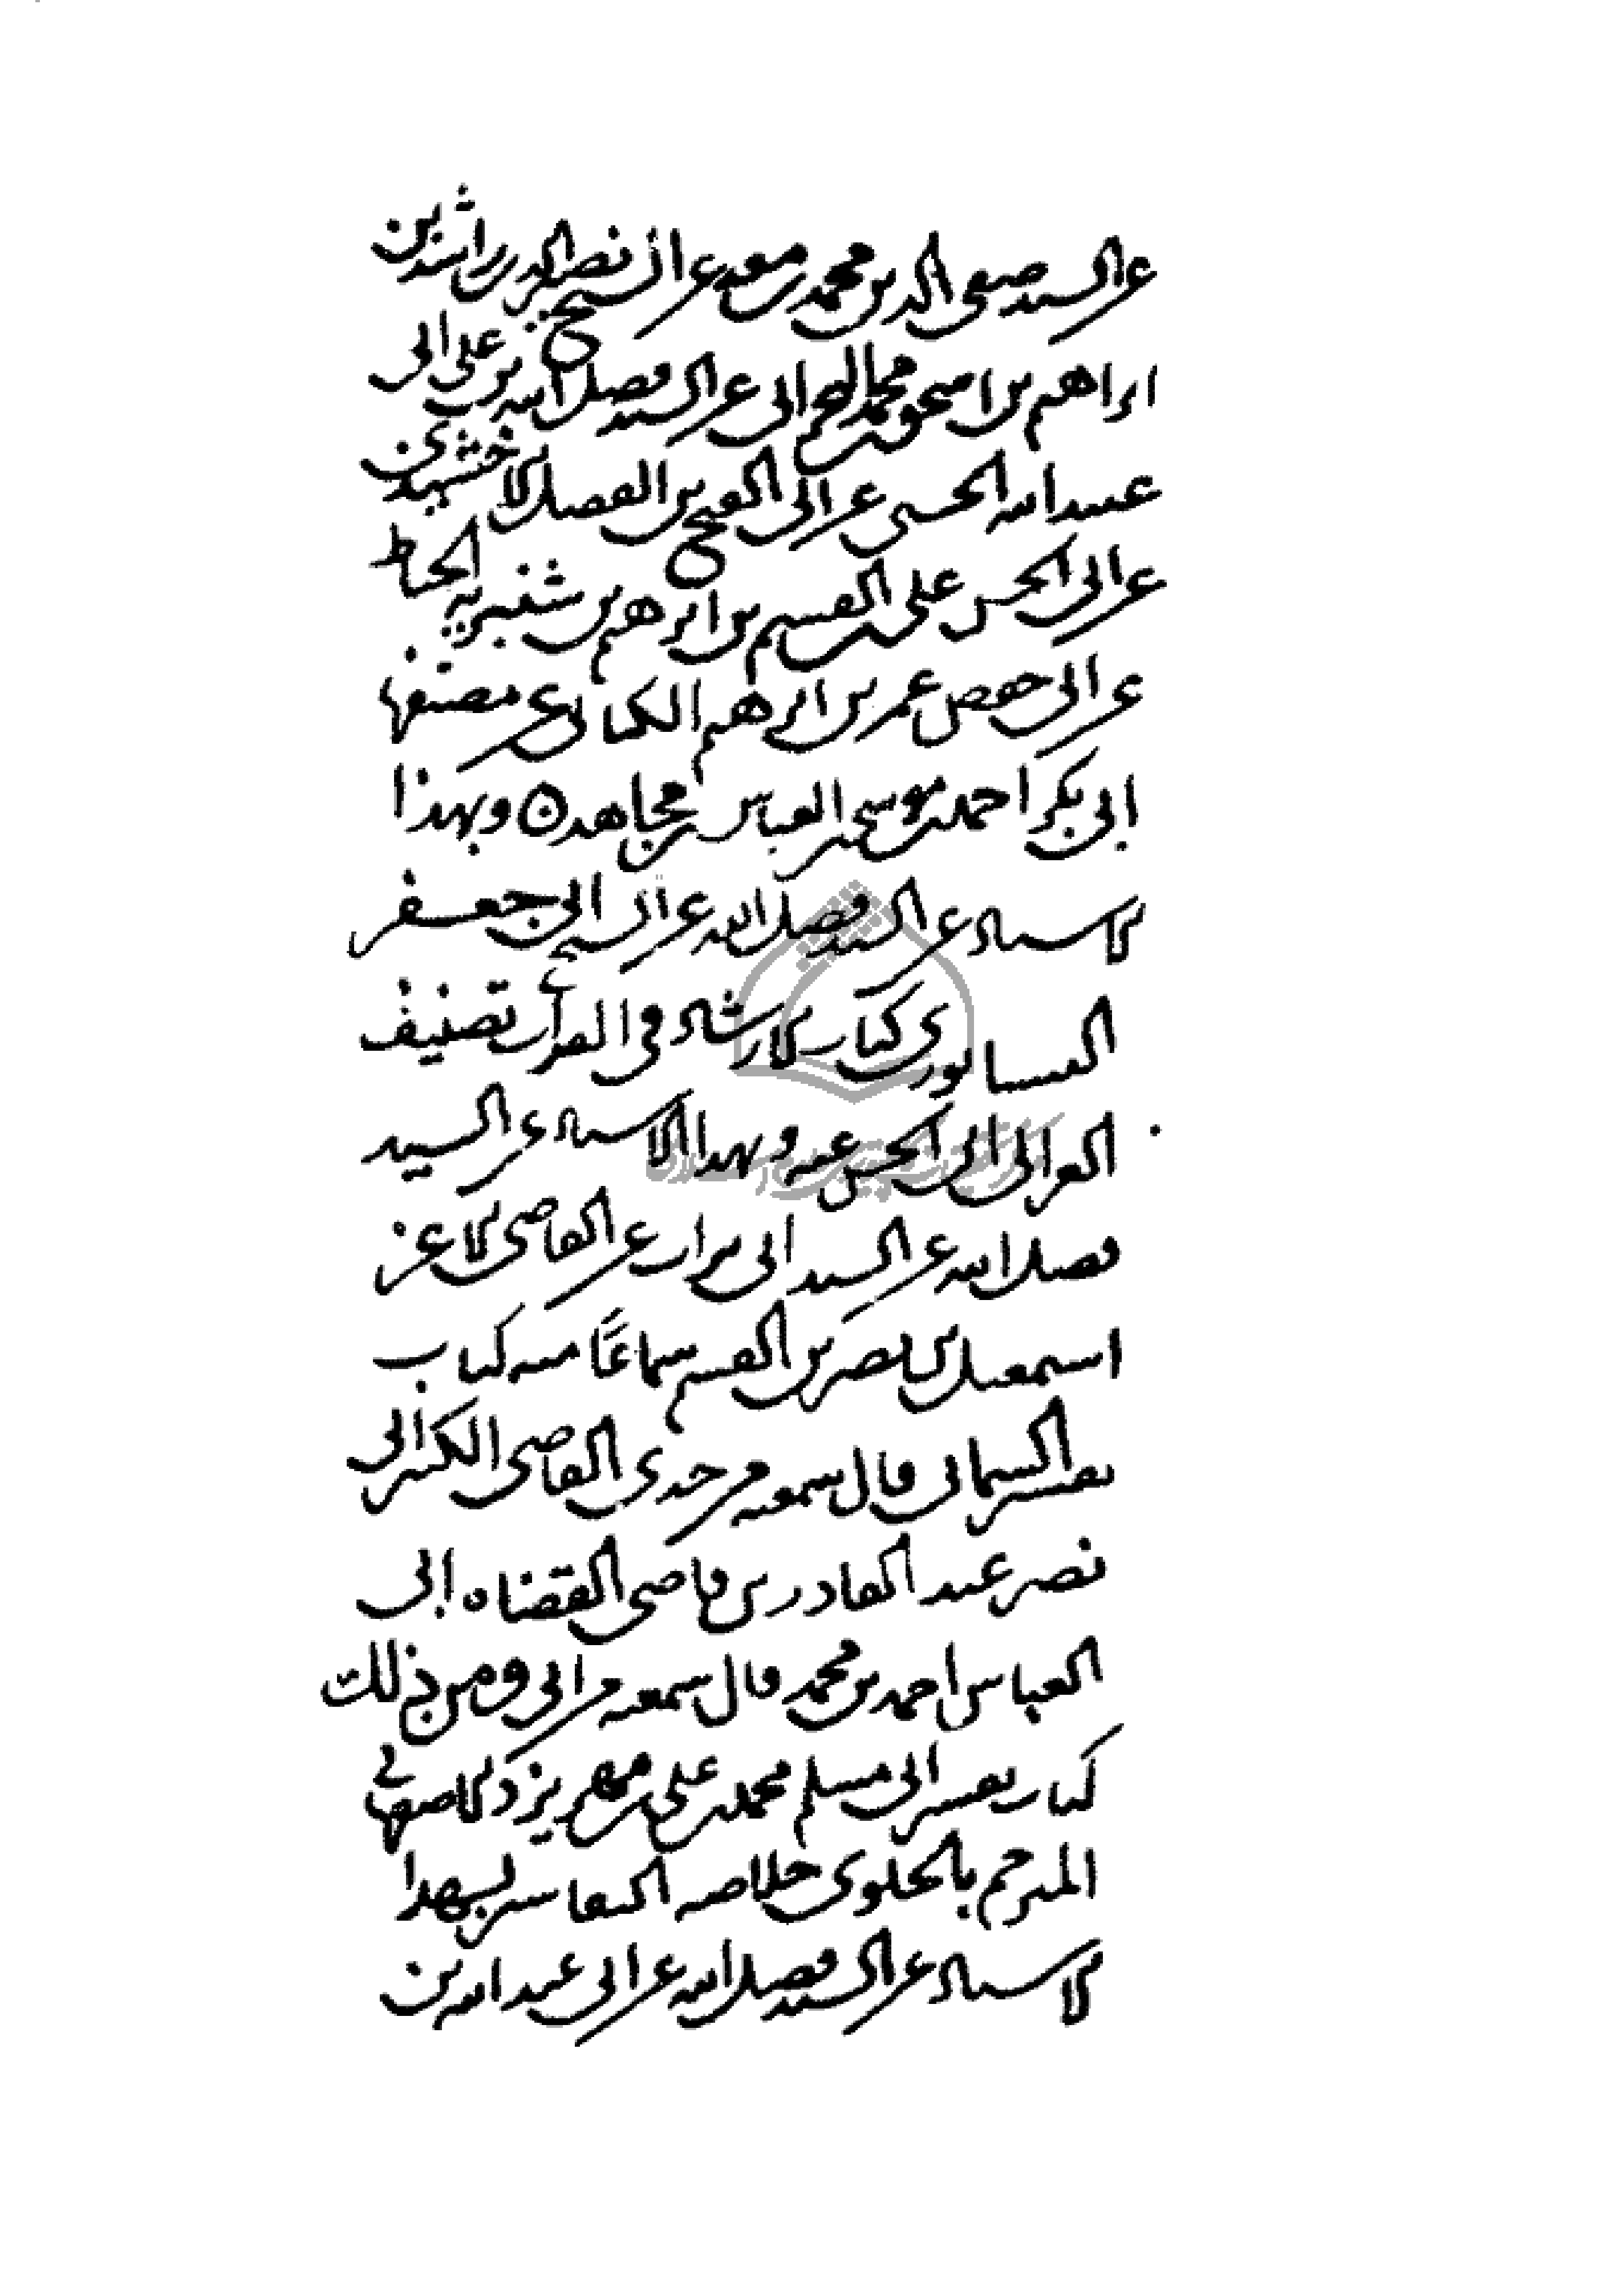 عن السيد صفي الدين محمد بن معد عن الشيخ نصير الدين راشد بن
ابراهيم بن اسحق بن محمد البحراني عن السيد فضل الله بن علي الى
عبيد الله الحسني عن ابي الفتح بن الفضل الاخشيدي
عن ابي الحسن علي بن القسم بن ابرهيم بن شنبويه الخياط
عن ابي حفص عمر بن ابرهيم الكتاني عن مصنفها
ابي بكر احمد بن موسى بن العباس بن مجاهد ن وبهذا
الاسناد عن السيد فضل الله عن الشيخ ابي جعفر
النيسابوري كتاب الارشاد في القرآن تصنيف
ابي الحسن عنه وبهذا الاسناد عن السيد
فضل الله عن السيد ابي تراب عن القاضي الاعز
اسمعيل بن نصر بن القسم سماعًا منه كتاب
تفسير السماني قال سمعته من جدي القاضي الكبير ابي
نصر عبد القادر بن قاضي القضاه ابي
العباس احمد بن محمد قال سمعته من ابي ومن ذلك
كتاب تفسير ابي مسلم محمد بن علي بن مهريزد الاصفهاني
المترجم خلاصه التفاسير بهذا
الاسناد عن السيد فضل الله عن ابي عبد الله بن